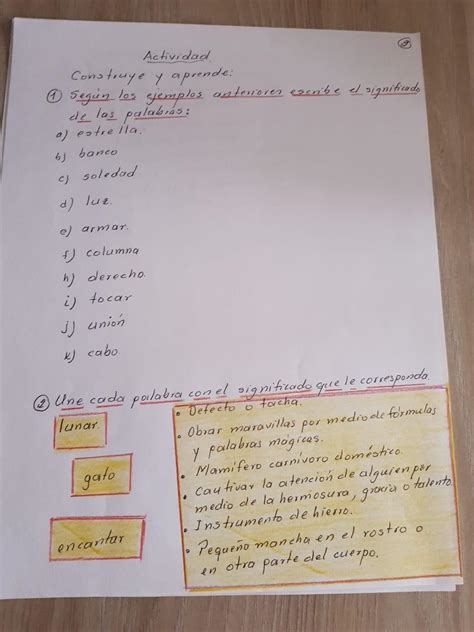 9
Actividad
Construye y aprende:
1 Según los ejemplos anteriores escribe el significado
de las palabras:
a) estrella.
b) banco
c) soledad
d) luz.
e) armar.
f) columna
h) derecho.
i) tocar
j) unión
k) cabo
2 Une cada palabra con el significado que le corresponda
lunar
gato
encantar
• Defecto o tacha.
• Obrar maravillas por medio de fórmulas
y palabras mágicas.
• Mamífero carnívoro doméstico.
• Cautivar la atención de alguien por
medio de la hermosura, gracia o talento
• Instrumento de hierro.
• Pequeña mancha en el rostro o
en otra parte del cuerpo.